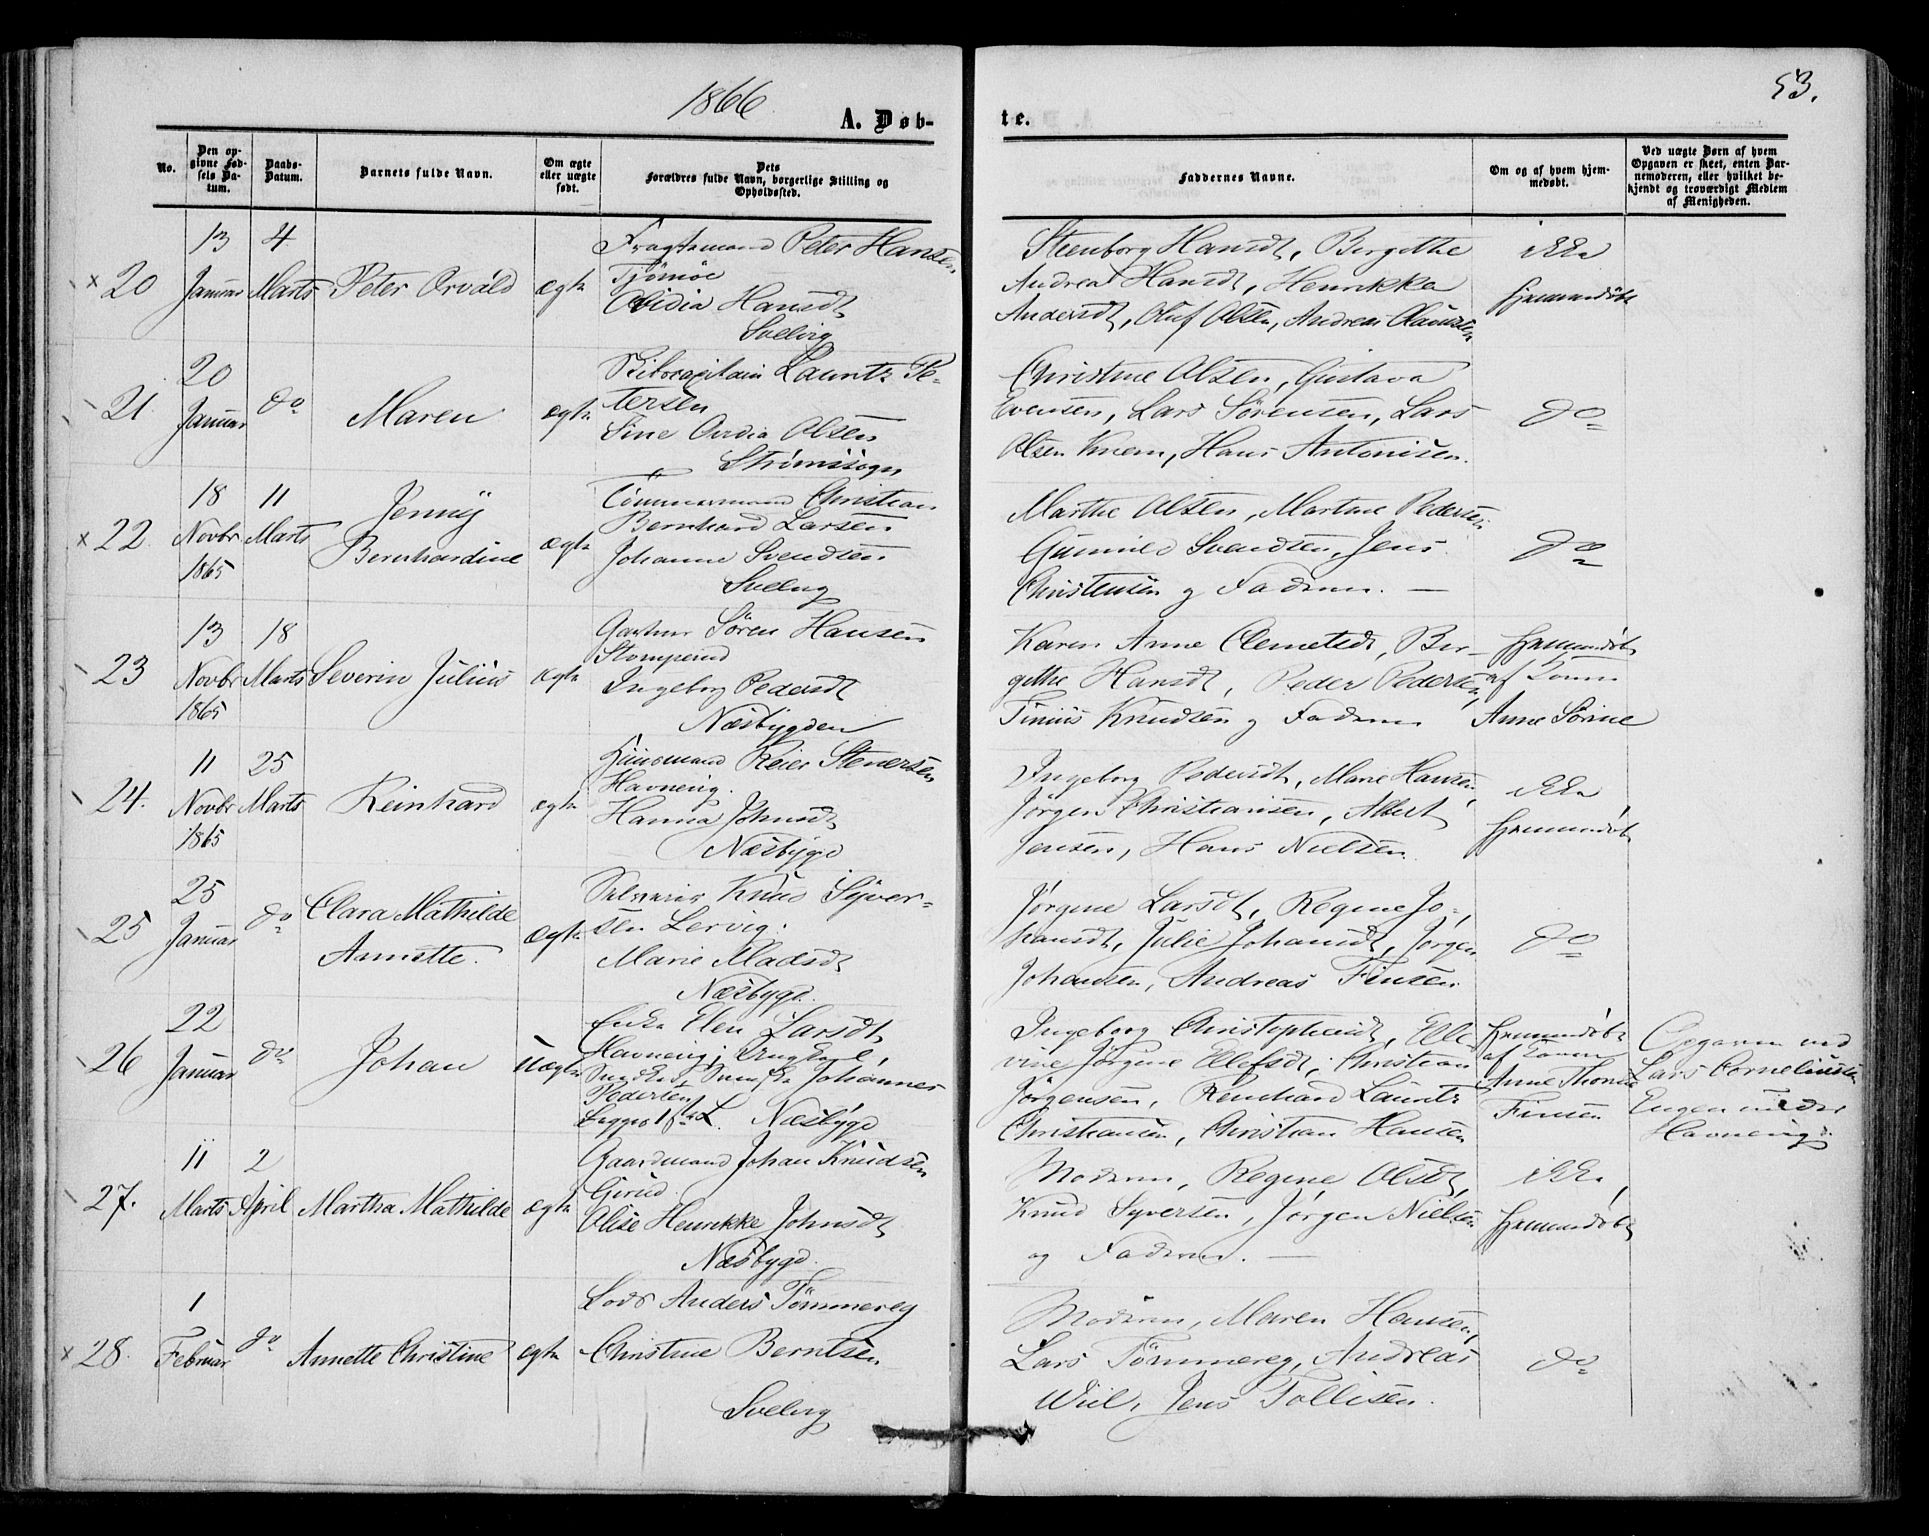 1866.
53.
A. Døb-
te.
No.
Den op-
givne Fød-
sels Da-
tum.
Daabs-
Datum.
Barnets fulde Navn.
Om ægte
eller uægte
født.
Dets
Forældres fulde Navn, borgerlige Stilling og
Opholdssted.
Faddernes Navne.
Om og af hvem hjem-
medøbt.
Ved uægte Børn af hvem
Opgaven er skeet, enten Bar-
nemoderen, eller hvilket be-
kjendt og troværdigt Medlem
af Menigheden.
× 20
13
Januar
4
Marts
Peter Orvald
ægte
Fragtemand Peter Hansen
Tjømøe
Ovidia Hansdt
Svelvig
Steenborg Hansdt, Bergithe
Andrea Hansdt, Henrikke
Andersdt, Oluf Olsen, Andreas Clausen
ikke
hjemmedøbt
21
20
Januar
do
Maren
ægte
Skibscapitain Lauritz Pe-
tersen
Sine Ovidia Olsen
Strømssogn
Christine Olsen, Gustava
Evensen, Lars Sørensen, Lars
Olsen Knem, Hans Antonisen.
do
× 22
18
Novbr
1865
11
Marts
Jenny
Bernhardine
ægte
Tømmermand Christian
Bernhard Larsen
Johanne Svendsen
Svelvig
Marthe Olsen, Martine Pedersen
Gunnild Svendsen, Jens
Christensen og Faderen. —
do
23
13
Novbr
1865
18
Marts
Severin Julius
ægte
Søren Hansen
Stomperud
Ingeborg Pedersdt
Næsbygden
Karen Anne Clemetsdt, Ber-
githe Hansdt, Peder Pedersen,
Tinius Knudsen og Faderen
hjemmedøbt
af
Anne Sørine
24.
11
Novbr
1865
25
Marts
Reinhard
ægte
Huusmand Reier Stenersen
Havnevig.
Hanna Johnsdt
Næsbygd
Ingeborg Pedersdt, Marie Hansen,
Jørgen Christiansen, Albert
Jensen, Hans Nielsen.
ikke
hjemmedøbt
25
25
Januar
do
Clara Mathilde
Annette.
ægte
Selveier Knud Syver-
sen Lervig.
Marie Madsdt
Næsbygd.
Jørgine Larsdt, Regine Jo-
hansdt, Julie Johansdt, Jørgen
Johansen, Andreas Finsen.
do
26
22
Januar
do
Johan
Uægte
Enke Elen Larsdt
Havnevig; Ungkarl,
Johannes
Pedersen
Begges 1ste L. Næsbygd
Ingeborg Christophersdt, Elle-
vine Jørgine Ellefsdt, Christian
Jørgensen, Reinhard Lauritz
Christiansen, Christian Hansen
Hjemmedøbt
af
Anne Thorine
Finsen
Opgaven ved
Lars Corneliussen
Engen
Havnevig.
27.
11
Marts
2
April
Martha Mathilde
ægte
Gaardmand Johan Knudsen
Gjerud.
Olise Henrikke Johnsdt
Næsbygd.
Moderen, Regine Olsdt,
Knud Syversen, Jørgen Nielsen
og Faderen. —
ikke
hjemmedøbt
× 28.
1
Februar
do
Annette Christine
ægte
Lods Anders Tømmereg
Christine Berntsen
Svelvig
Moderen, Maren Hansen,
Lars Tømmereg, Andreas
Wiel, Jens Tollisen.
do